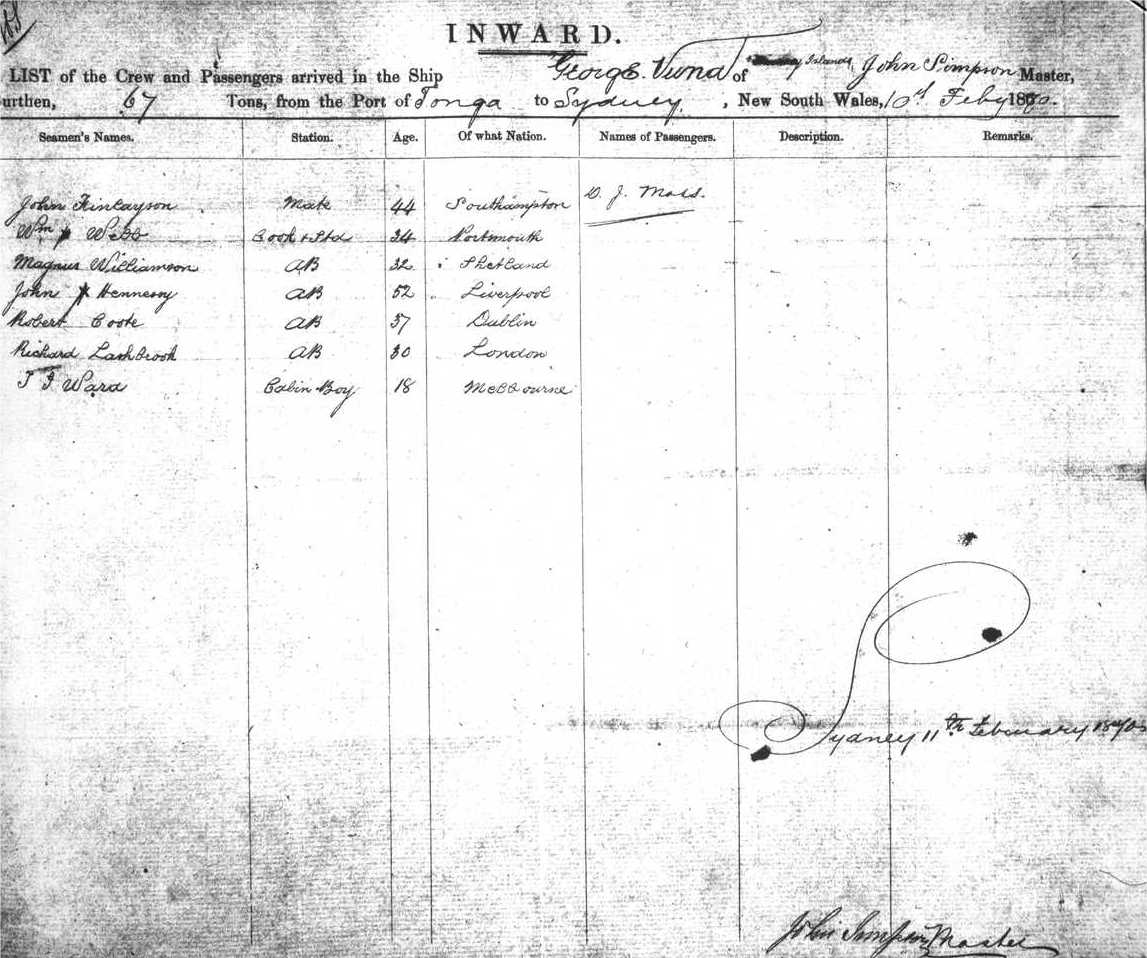 INWARD.
LIST of the Crew and Passengers arrived in the Ship George Vuna of Islands, John Simpson Master,
urthen, 67 Tons, from the Port of Tonga to Sydney, New South Wales, 10th Feby 1870.
Seamen's Names. Station. Age. Of what Nation. Names of Passengers. Description. Remarks.
John Finlayson Mate 44 Southampton D. J. Moss.
Wm Webb Cook & Std 34 Portsmouth
Magnus Williamson AB 32 Shetland
John Hennessy AB 52 Liverpool
Robert Coote AB 37 Dublin
Richard Lashbrook AB 30 London
T J Ward Cabin Boy 18 Melbourne
Sydney 11th February 1870
John Simpson Master